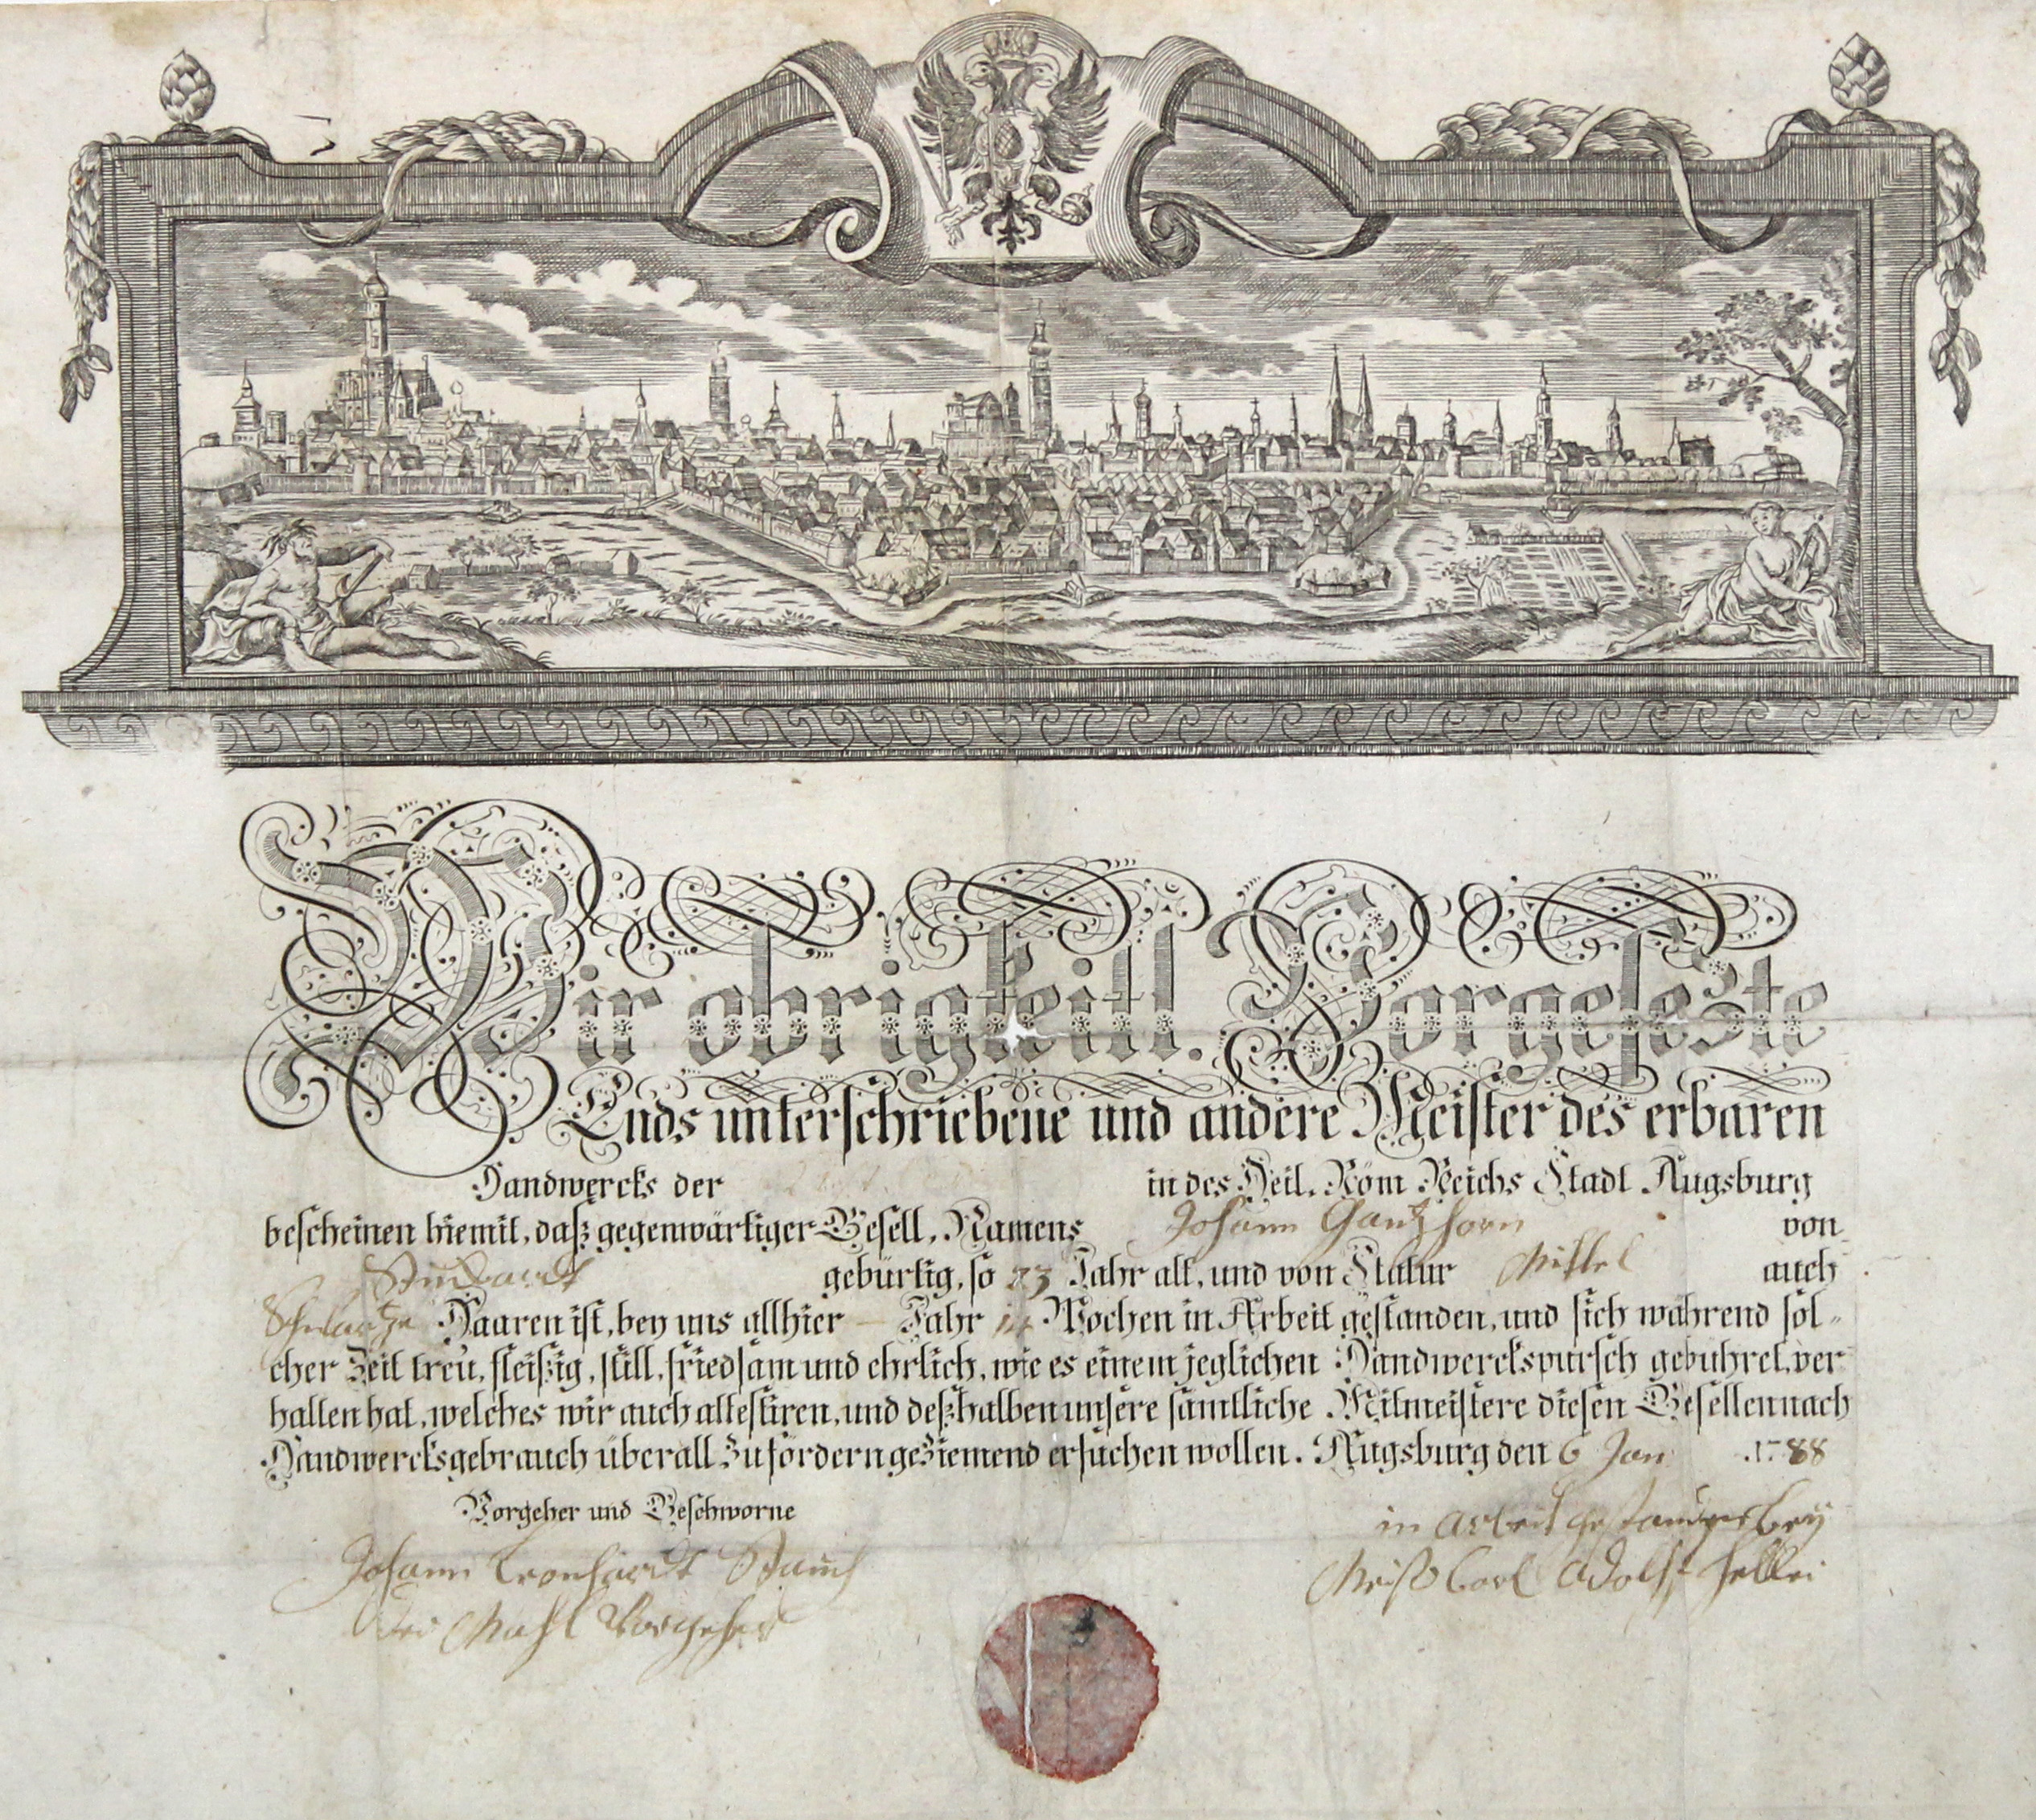 Wir obrigkeitl. Vorgesezte
Ends unterschriebene und andere Meister des erbaren
Handwercks der in des Heil. Röm Reichs Stadt Augsburg
bescheinen hiemit, daß gegenwärtiger Gesell, Namens Johann Gantzhorn von
gebürtig, so 23 Jahr alt, und von Statur Mittel auch
Schwartze Haaren ist, bey uns allhier — Jahr 14 Wochen in Arbeit gestanden, und sich während sol=
cher Zeit treu, fleißig, still, friedsam und ehrlich, wie es einem jeglichen Handwerckspursch gebühret, ver
halten hat, welches wir auch attestiren, und deßhalben unsere sämtliche Mitmeistere diesen Gesellen nach
Handwercksgebrauch überall zu fördern geziemend ersuchen wollen. Augsburg den 6 Jan 1788
Vorgeher und Geschworne
in arbeit gestanden bey
Johann Leonhardt
Carl Adolff
Vorgeher